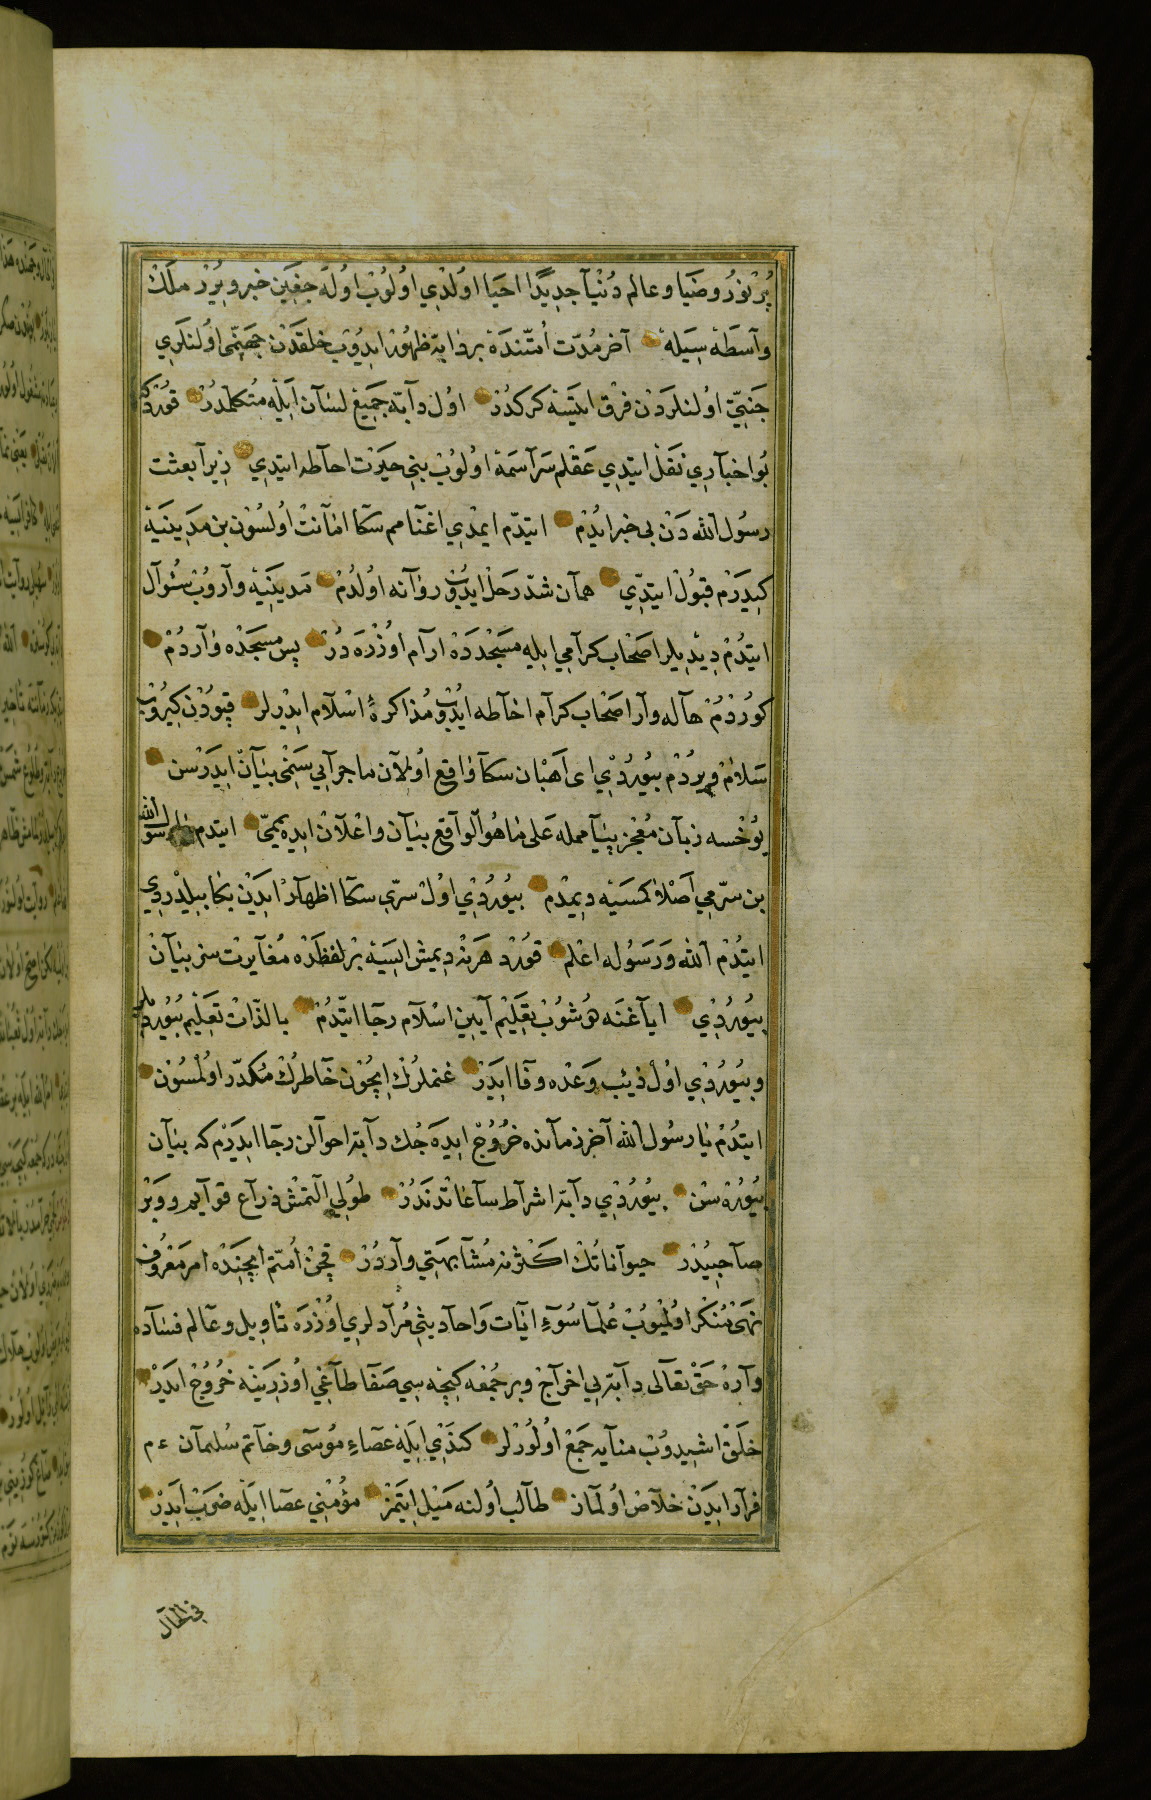 پر نور و ضیا و عالم دنیا جدیدًا احیا اولدی اولوب اوله جغین خبر ویرر ملك
واسطه سیله آخر مدّت امّتنده بر دابه ظهور ایدوب خلقدن جهنّمی اولنلری
جنّتی اولنلردن فرق ایتسه كركدر اول دابّه جمیع لسان ایله متكلمدر قورد
بو اخباری نقل ایتدی عقلم سراسمه اولوب بنی حیرت احاطه ایتدی زیرا بعثت
رسول الله دن بی خبر ایدم ایتدم ایمدی اغنامم سكا امانت اولسون بن مدینیه
كیدرم قبول ایتدی همان شدّ رحل ایدوب روانه اولدم مدینیه واروب سئوال
ایتدم دیدیلر اصحاب كرامی ایله مسجدده ارام اوزره در پس مسجده واردم
كوردم هاله وار اصحاب كرام احاطه ایدوب مذاكرهٔ اسلام ایدرلر قپودن كیروب
سلام ویردم بیوردی ای اهبان سكا واقع اولان ماجرایی سنمی بیان ایدرسن
یوخسه زبان معجز بیانمله علی ما هو الواقع بیان و اعلان ایده یممی ایتدم یا رسول الله
بن سرّمی اصلا كمسیه دیمدم بیوردی اول سرّی سكا اظهار ایدن بكا بیلدردی
ایتدم الله و رسوله اعلم قورد هر نه دیمش ایسه بر لفظده مغایرت سز بیان
بیوردی ایاغنه دوشوب تعلیم آیین اسلام رجا ایتدم بالذّات تعلیم بیوردیلر
و بیوردی اول ذیب وعده وفا ایدر غنملرك ایچون خاطرك مكدّر اولمسون
ایتدم یا رسول الله آخر زمانده خروج ایده جك دابّه احوالن رجا ایدرم كه بیان
بیوره سن بیوردی دابّه اشراط ساعاتدندر طولی التمش ذراع قوایم و وبر
صاحبیدر حیواناتك اكثرنه مشابهتی واردر قچن امّتم ایچنده امر معروف
نهی منكر اولمیوب علما سوء ایات و احادیثی مرادلری اوزره تاویل و عالم فساده
واره حق تعالی دابّه یی اخراج و بر جمعه كیجه سی صفا طاغی اوزرینه خروج ایدر
خلق اشیدوب منایه جمع اولورلر كندی ایله عصاء موسی و خاتم سلیمان ٤م
فرار ایدن خلاص اولماز طالب اولنه میل ایتمز مؤمنی عصا ایله ضرب ایدر
فی الحال